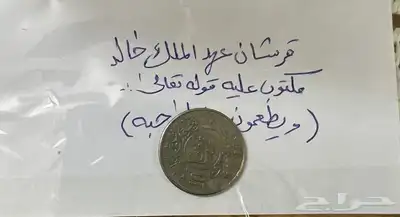 قرشان عهد الملك خالد
مكتوب عليه قوله تعالى ..
(ويطعمون حبه)
حراج